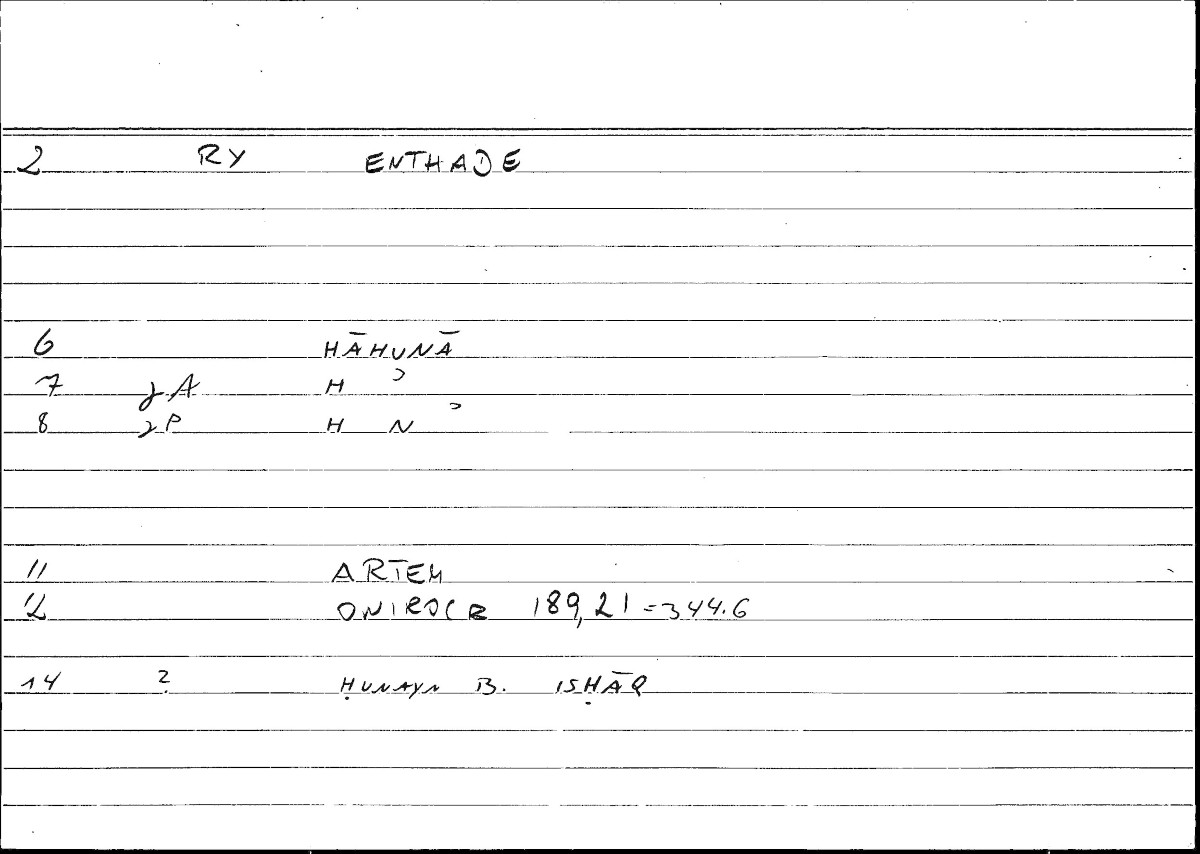 2 RY ENTHADE
6 HĀHUNĀ
7 gA H ʾ
8 gP H N ʾ
11 ARTEM
12 ONIROCR 189,21 = 344.6
14 ? ḤUNAYN B. ISḤĀQ